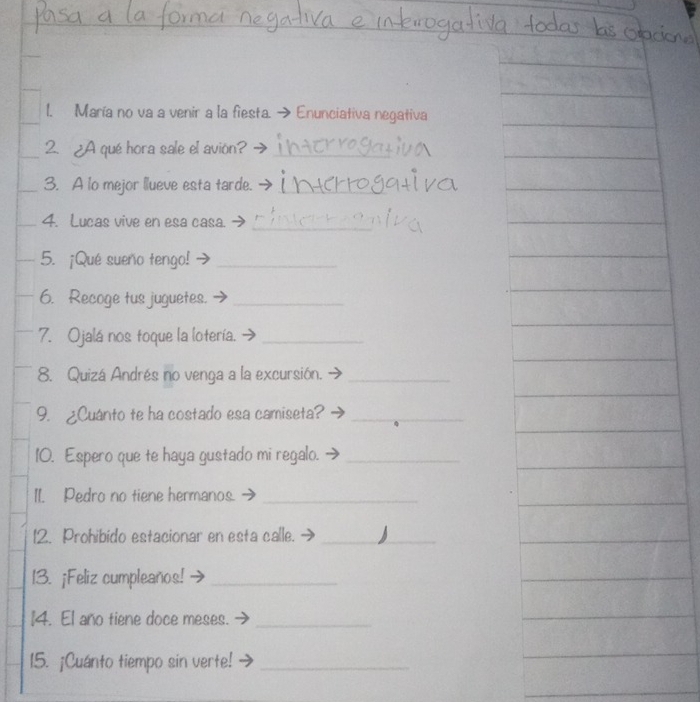 pasa a la forma negativa e interrogativa todas las oraciones
1. María no va a venir a la fiesta. → Enunciativa negativa
2. ¿A qué hora sale el avión? → interrogativa
3. A lo mejor llueve esta tarde. → interrogativa
4. Lucas vive en esa casa. →
5. ¡Qué sueño tengo! →
6. Recoge tus juguetes. →
7. Ojalá nos toque la lotería. →
8. Quizá Andrés no venga a la excursión. →
9. ¿Cuánto te ha costado esa camiseta? →
10. Espero que te haya gustado mi regalo. →
11. Pedro no tiene hermanos. →
12. Prohibido estacionar en esta calle. →
13. ¡Feliz cumpleaños! →
14. El año tiene doce meses. →
15. ¡Cuánto tiempo sin verte! →